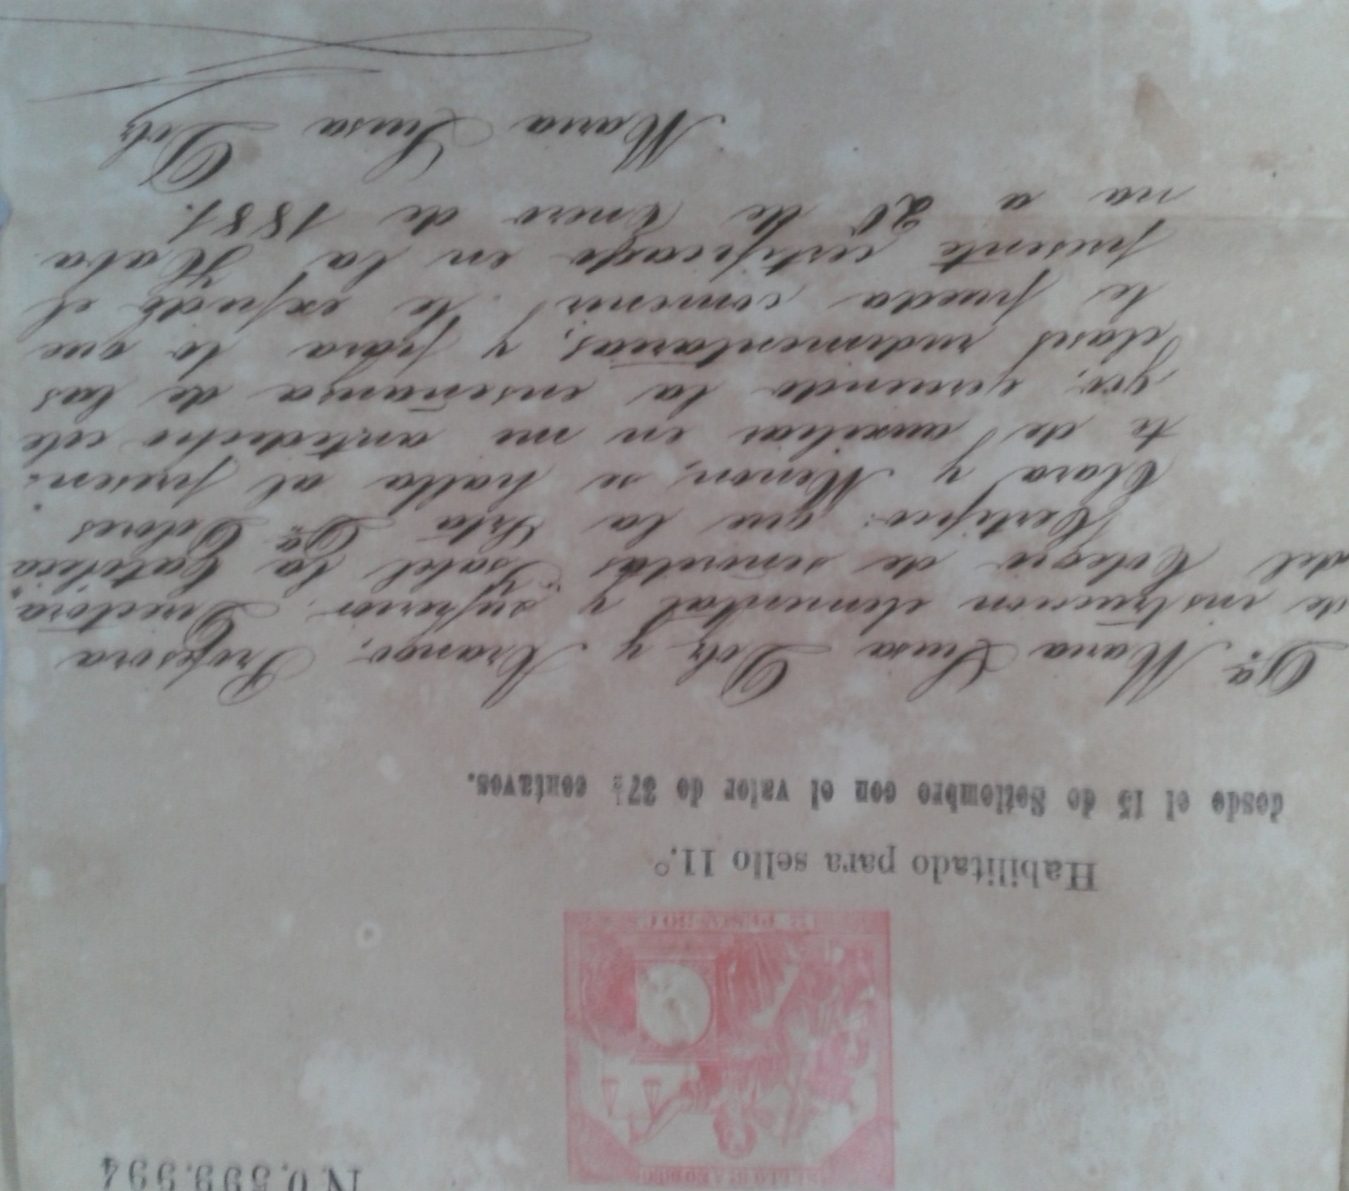 N0.599.994
Habilitado para sello 11.°
desde el 15 de Setiembre con el valor de 37½ centavos.
Dª Maria Luisa Dolz y Arango, Profesora
de instruccion elemental y superior, Directora
del Colegio de señoritas "Isabel la Católica"
Certifico: que la Srta Dª Dolores
Clara y Menor, se halla al presen:
te de auxiliar en me antedicho cole
gio, ejerciendo la enseñanza de las
clases rudimentarias; y para lo que
le pueda convenir le expide el
presente certificado en la Haba
na a 20 de Enero de 1881.
Maria Luisa Dolz